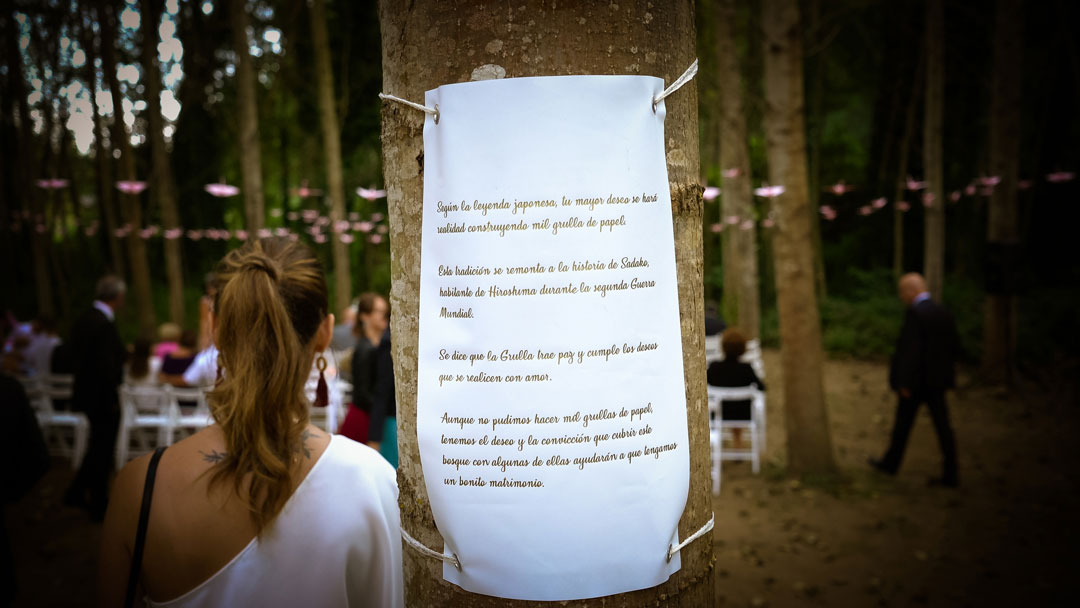 Según la leyenda japonesa, tu mayor deseo se hará
realidad construyendo mil grulla de papel.
Esta tradición se remonta a la historia de Sadako,
habitante de Hiroshima durante la segunda Guerra
Mundial.
Se dice que la Grulla trae paz y cumple los deseos
que se realicen con amor.
Aunque no pudimos hacer mil grullas de papel,
tenemos el deseo y la convicción que cubrir este
bosque con algunas de ellas ayudarán a que tengamos
un bonito matrimonio.